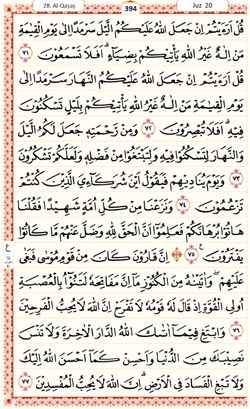 28. Al-Qaṣaṣ 394 Juz 20
قُلْ اَرَءَيْتُمْ اِنْ جَعَلَ اللّٰهُ عَلَيْكُمُ الَّيْلَ سَرْمَدًا اِلٰى يَوْمِ الْقِيٰمَةِ
مَنْ اِلٰهٌ غَيْرُ اللّٰهِ يَاْتِيْكُمْ بِضِيَآءٍ ؕ اَفَلَا تَسْمَعُوْنَ ٧١
قُلْ اَرَءَيْتُمْ اِنْ جَعَلَ اللّٰهُ عَلَيْكُمُ النَّهَارَ سَرْمَدًا اِلٰى
يَوْمِ الْقِيٰمَةِ مَنْ اِلٰهٌ غَيْرُ اللّٰهِ يَاْتِيْكُمْ بِلَيْلٍ تَسْكُنُوْنَ
فِيْهِ ؕ اَفَلَا تُبْصِرُوْنَ ٧٢ وَمِنْ رَّحْمَتِهٖ جَعَلَ لَكُمُ الَّيْلَ
وَالنَّهَارَ لِتَسْكُنُوْا فِيْهِ وَلِتَبْتَغُوْا مِنْ فَضْلِهٖ وَلَعَلَّكُمْ تَشْكُرُوْنَ
٧٣ وَيَوْمَ يُنَادِيْهِمْ فَيَقُوْلُ اَيْنَ شُرَكَآءِىَ الَّذِيْنَ كُنْتُمْ
تَزْعُمُوْنَ ٧٤ وَنَزَعْنَا مِنْ كُلِّ اُمَّةٍ شَهِيْدًا فَقُلْنَا
هَاتُوْا بُرْهَانَكُمْ فَعَلِمُوْٓا اَنَّ الْحَقَّ لِلّٰهِ وَضَلَّ عَنْهُمْ مَّا كَانُوْا
يَفْتَرُوْنَ ٧٥ اِنَّ قَارُوْنَ كَانَ مِنْ قَوْمِ مُوْسٰى فَبَغٰى
عَلَيْهِمْ وَاٰتَيْنٰهُ مِنَ الْكُنُوْزِ مَآ اِنَّ مَفَاتِحَهٗ لَتَنُوْٓاُ بِالْعُصْبَةِ
اُولِى الْقُوَّةِ اِذْ قَالَ لَهٗ قَوْمُهٗ لَا تَفْرَحْ اِنَّ اللّٰهَ لَا يُحِبُّ الْفَرِحِيْنَ
٧٦ وَابْتَغِ فِيْمَآ اٰتٰىكَ اللّٰهُ الدَّارَ الْاٰخِرَةَ وَلَا تَنْسَ
نَصِيْبَكَ مِنَ الدُّنْيَا وَاَحْسِنْ كَمَآ اَحْسَنَ اللّٰهُ اِلَيْكَ
وَلَا تَبْغِ الْفَسَادَ فِى الْاَرْضِ ؕ اِنَّ اللّٰهَ لَا يُحِبُّ الْمُفْسِدِيْنَ ٧٧